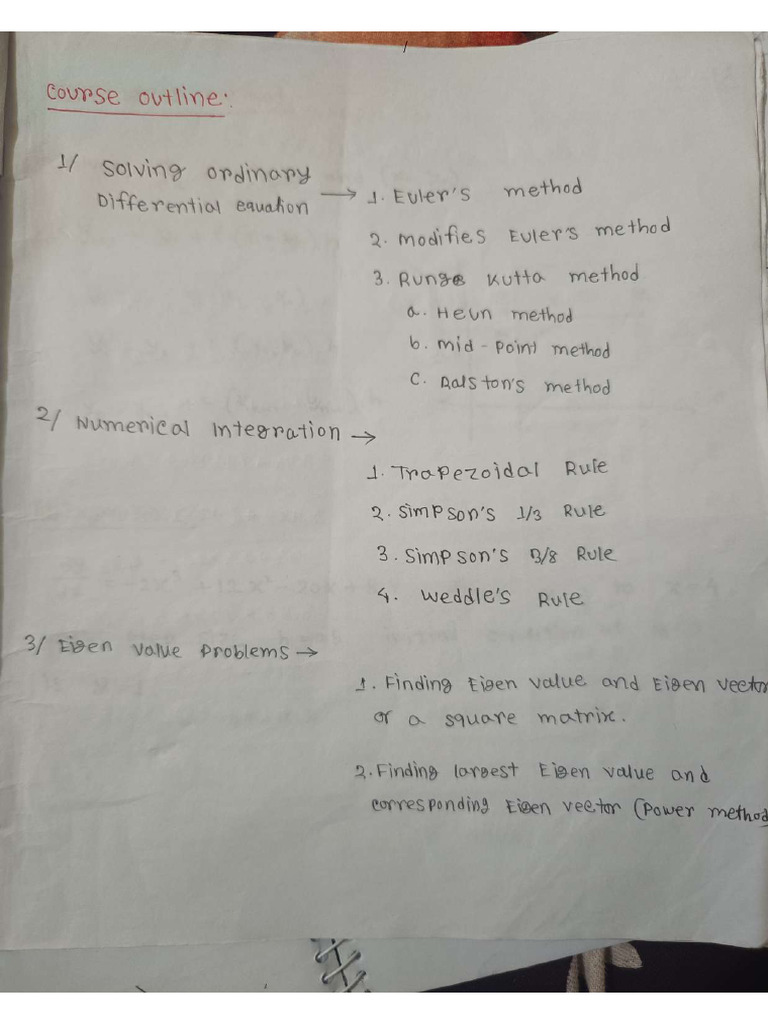 Course outline:
1/ Solving ordinary
Differential equation → 1. Euler's method
2. modifies Euler's method
3. Runge Kutta method
a. Heun method
b. mid-point method
c. Ralston's method
2/ Numerical Integration →
1. Trapezoidal Rule
2. Simpson's 1/3 Rule
3. Simpson's 3/8 Rule
4. Weddle's Rule
3/ Eigen value Problems →
1. Finding Eigen value and Eigen vector
or a square matrix.
2. Finding largest Eigen value and
corresponding Eigen vector (Power method